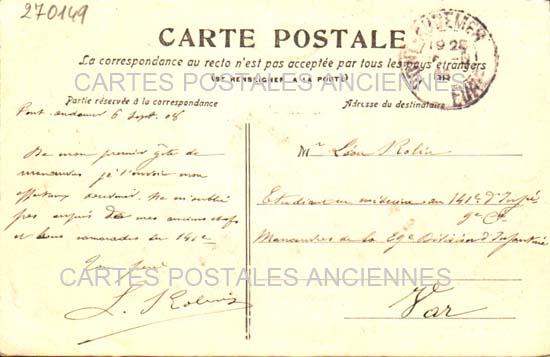 270149
CARTE POSTALE
La correspondance au recto n'est pas acceptée par tous les pays étrangers
(SE RENSEIGNER A LA POSTE)
Partie réservée à la correspondance
Adresse du destinataire
PONT-AUDEMER
EURE
Pont audemer 6 Sept. 08
De mon premier gîte de
manœuvres je t'envoie mon
affectueux souvenir. Ne m'oublie
pas auprès de mes anciens chefs
et bons camarades du 141e
L. Rolin
Mr Léon Rolin
Etudiant en médecine au 141e d'Infie
9e Cie
Manœuvres de la 29e Division d'Infanterie
Var
CARTES POSTALES ANCIENNES
CARTES POSTALES ANCIENNES